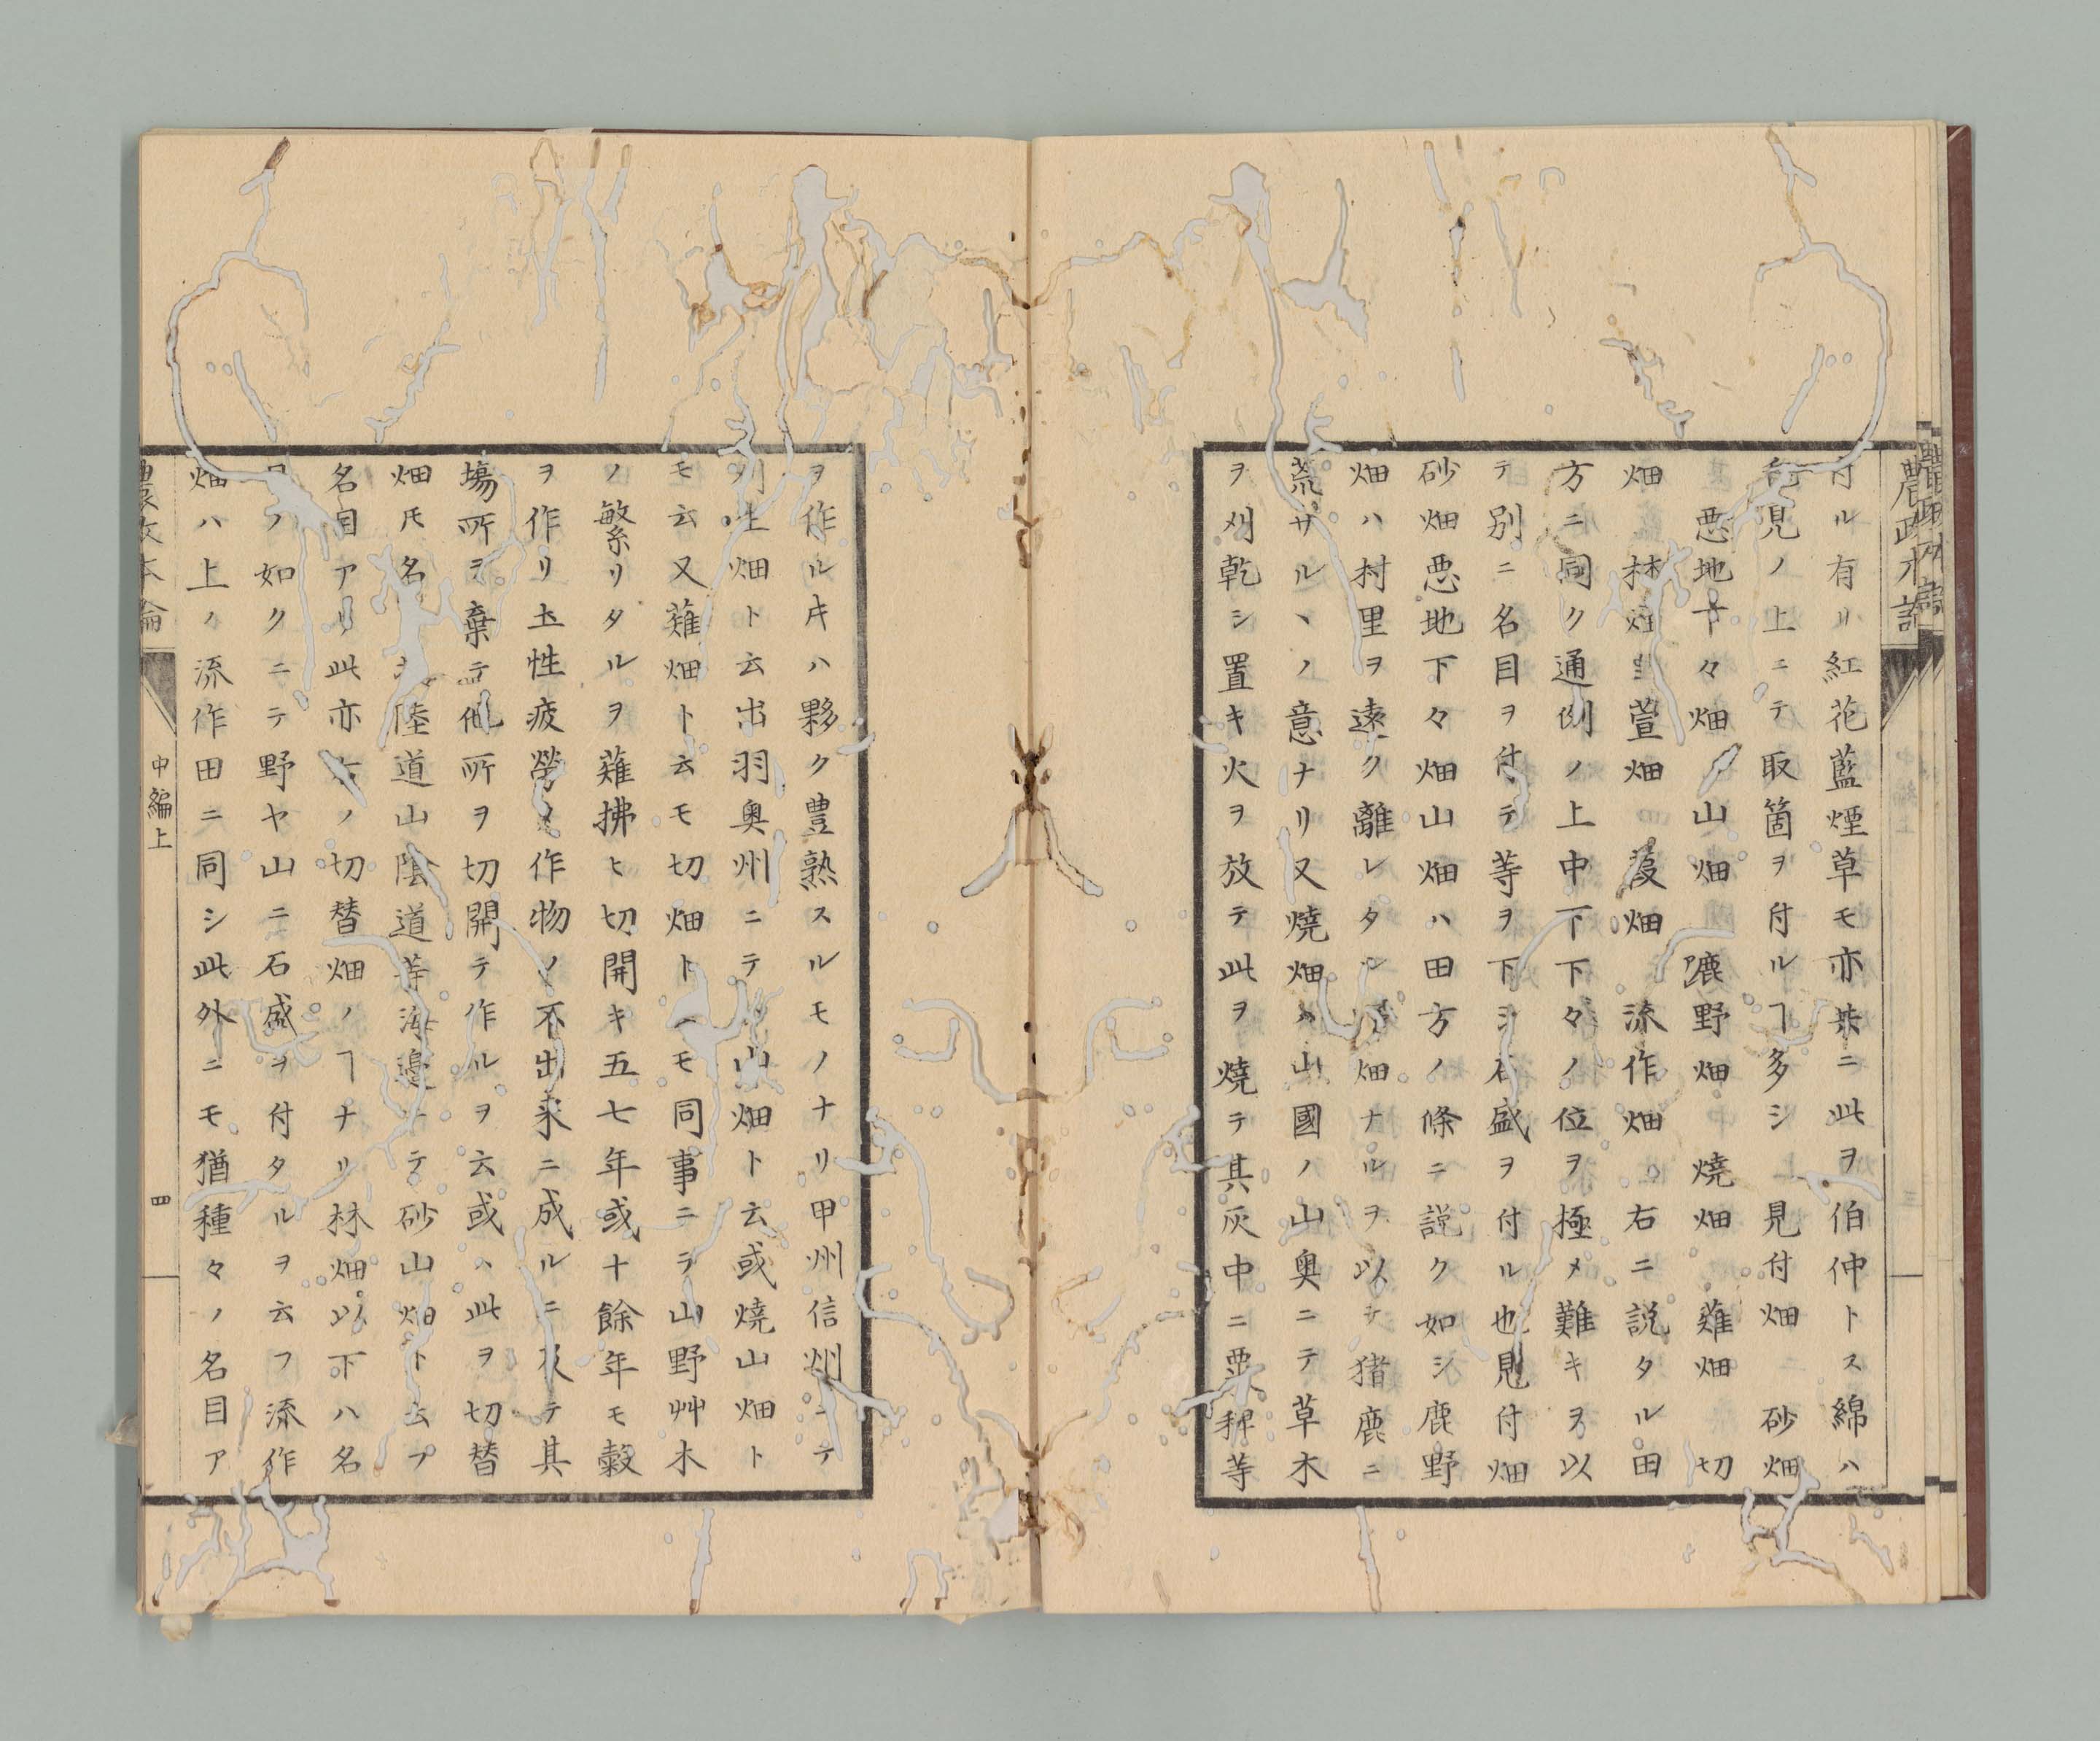 付ル有リ紅花藍煙草モ亦共ニ此ヲ伯仲トス綿ハ
見ノ上ニテ取箇ヲ付ルヿ多シ 見付畑 砂畑
悪地下々畑 山畑 鹿野畑 焼畑 薙畑 切
畑 林畑 萱畑 葭畑 流作畑 右ニ説タル田
方ニ同ク通例ノ上中下下々ノ位ヲ極メ難キヲ以
テ別ニ名目ヲ付テ等ヲ下シ石盛ヲ付ル也見付畑
砂畑悪地下々畑山畑ハ田方ノ條ニ説ク如シ鹿野
畑ハ村里ヲ遠ク離レタル畑ナルヲ以テ猪鹿ニ
荒サルヽノ意ナリ又焼畑ハ山國ノ山奥ニテ草木
ヲ刈乾シ置キ火ヲ放テ此ヲ焼テ其灰中ニ粟稗等
ヲ作ル𪜈ハ夥ク豊熟スルモノナリ甲州信州ニテ
畑ト云出羽奥州ニテ山畑ト云或焼山畑ト
モ云又薙畑ト云モ切畑ト云モ同事ニテ山野艸木
ノ繁リタルヲ薙拂ヒ切開キ五七年或十餘年モ穀
ヲ作リ土性疲勞シ作物ノ不出来ニ成ルニ及テ其
塲所ヲ棄テ他所ヲ切開テ作ルヲ云或ハ此ヲ切替
畑𪜈名 陸道山陰道等海邊ニテ砂山畑ト云フ
名目アリ此亦ノ切替畑ノヿナリ林畑以下ハ名
ノ如クニテ野ヤ山ニ石盛ヲ付タルヲ云フ流作
畑ハ上ノ流作田ニ同シ此外ニモ猶種々ノ名目ア
農政本論
中編上
四